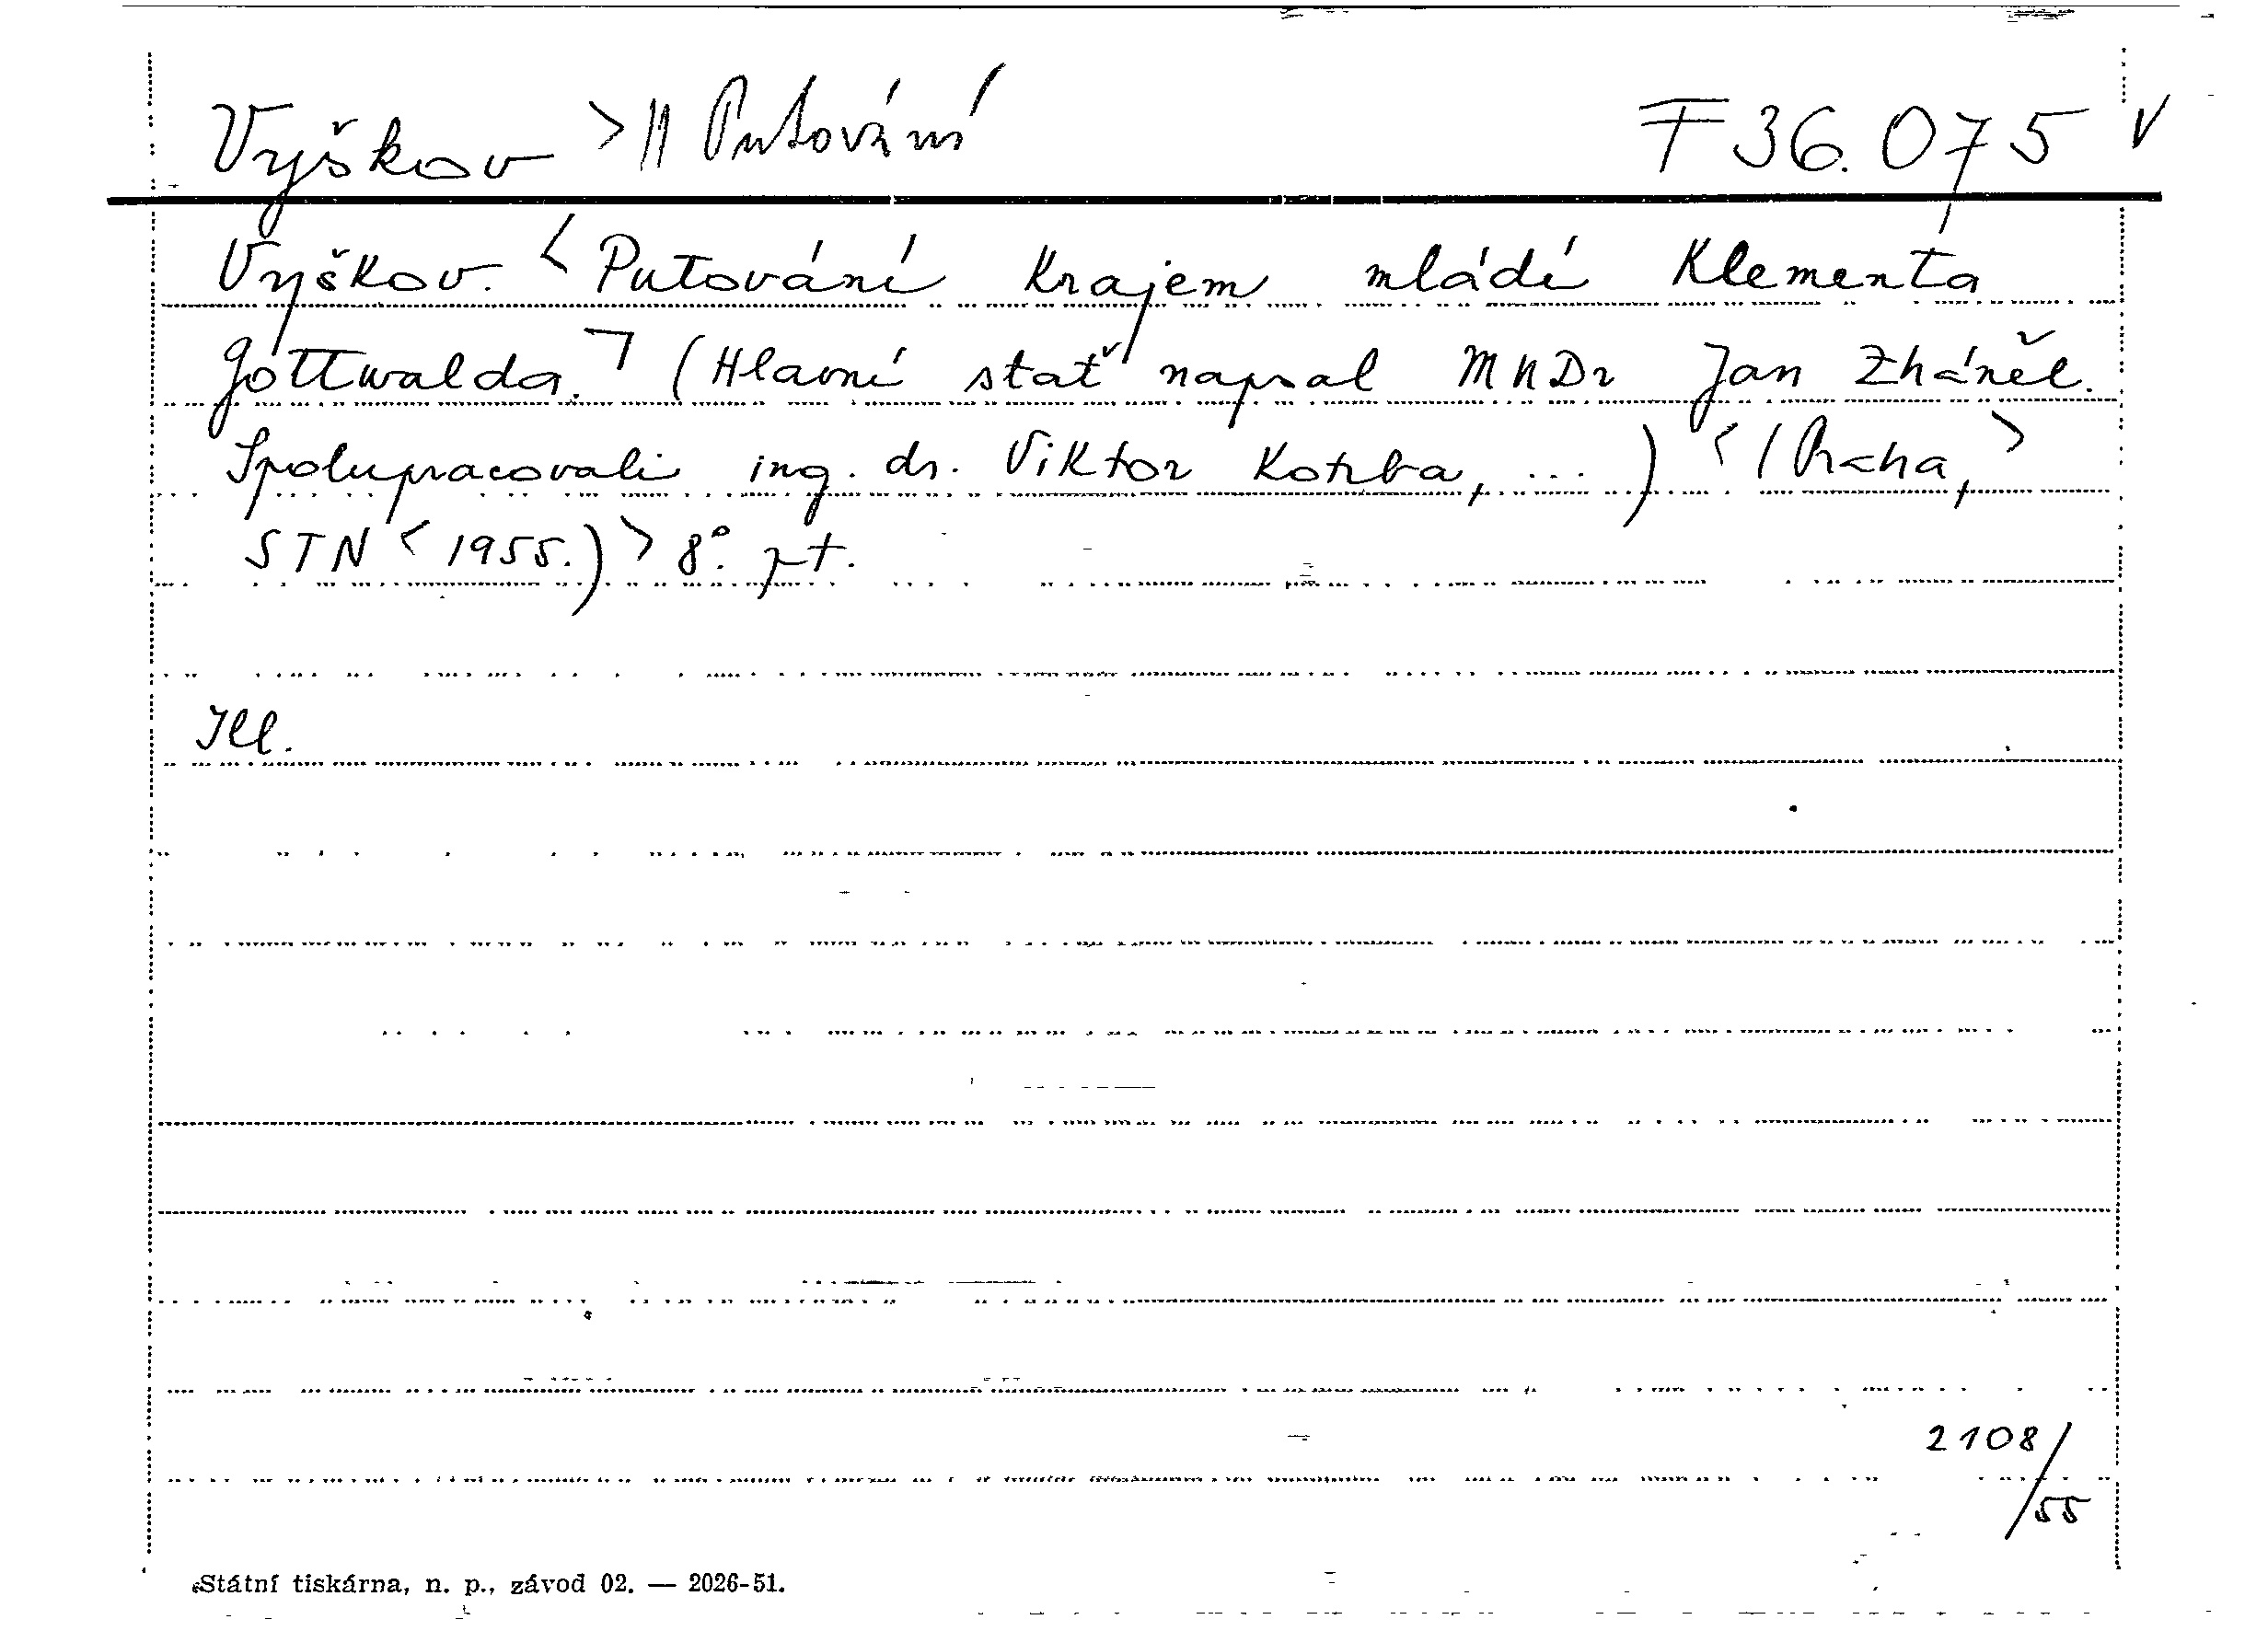 Vyškov >// Putování F 36.075 V
Vyškov. < Putování krajem mládí Klementa
Gottwalda. > (Hlavní stať napsal MUDr Jan Zháněl.
Spolupracovali ing. dr. Viktor Kotrba, ... ) < (Praha, >
STN < 1955.) > 8°. pt.
Ill.
2108/
55
Státní tiskárna, n. p., závod 02. — 2026-51.